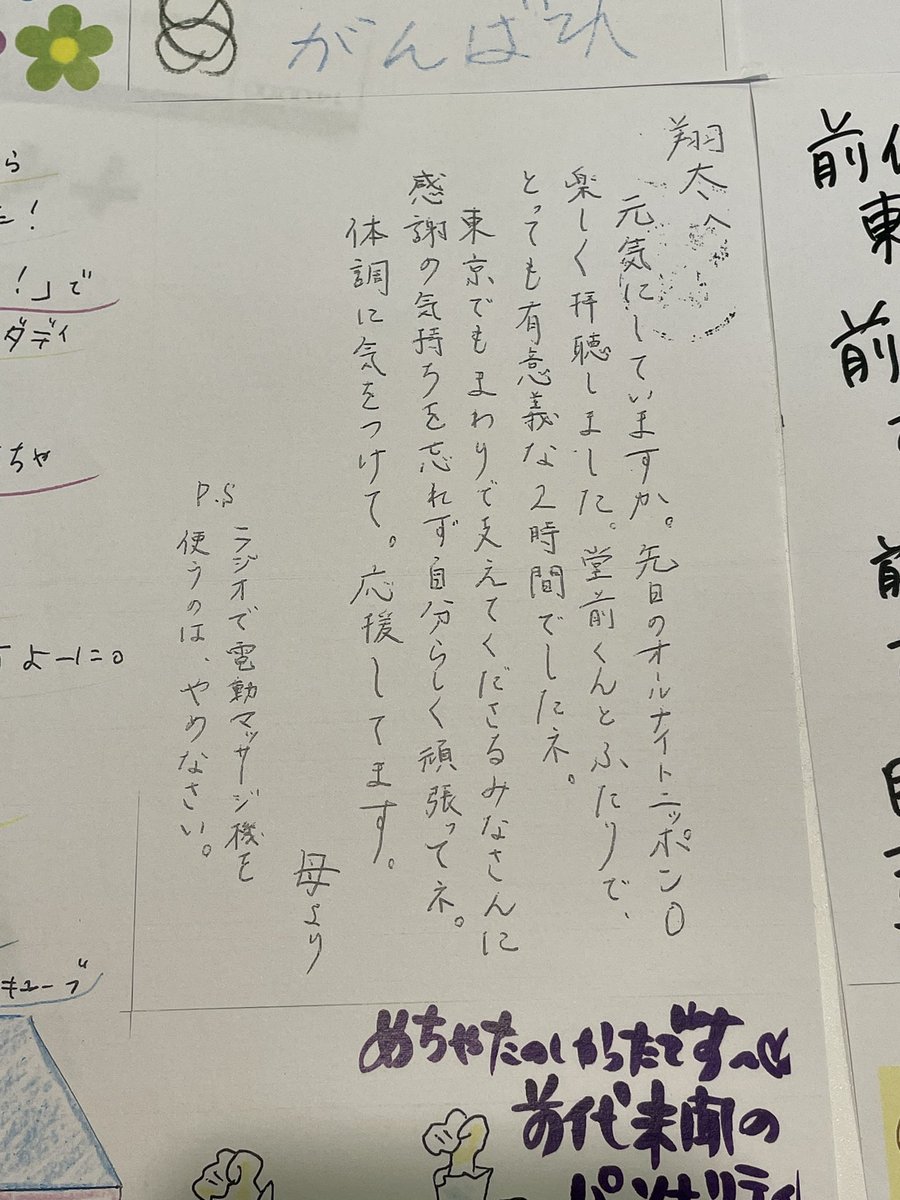 がんばれ
翔太へ
元気にしていますか。先日のオールナイトニッポン0
楽しく拝聴しました。堂前くんとふたりで、
とっても有意義な2時間でしたネ。
東京でもまわりで支えてくださるみなさんに
感謝の気持ちを忘れず自分らしく頑張ってネ。
体調に気をつけて。応援してます。
母より
P.S ラジオで電動マッサージ機を
使うのは、やめなさい。
めちゃたのしかったです〜♡
前代未聞の
パーソナリティ
前代
東
前
前
ら
!
!」で
ダディ
ちゃ
キューブ